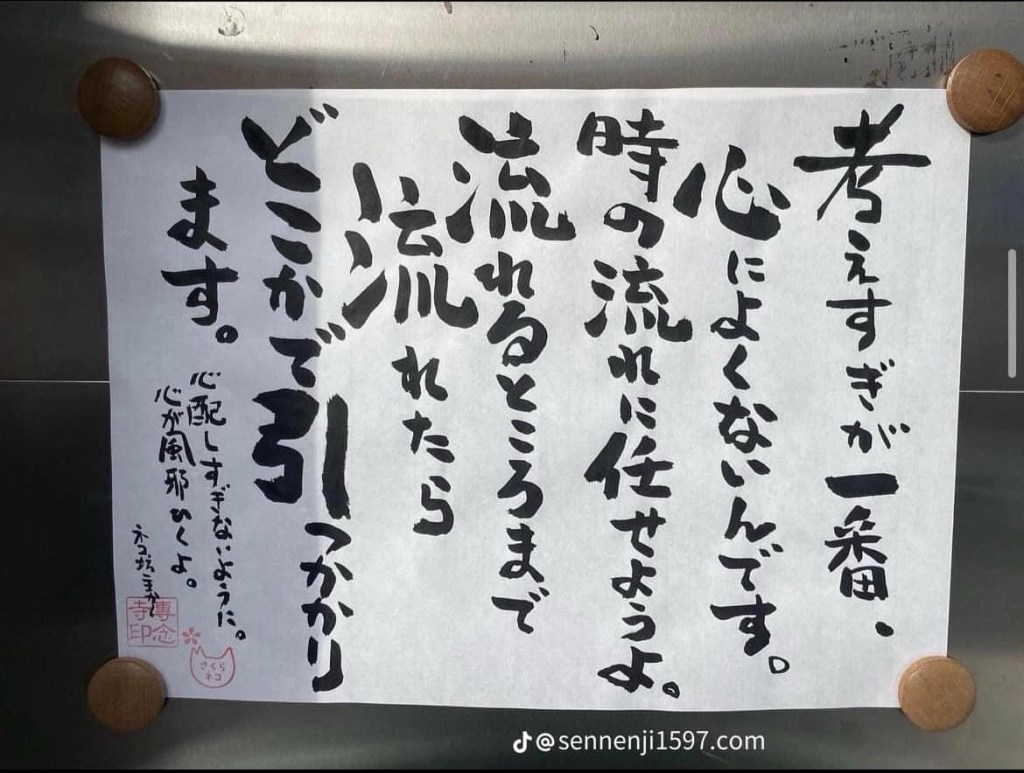 考えすぎが一番、
心によくないんです。
時の流れに任せようよ。
流れるところまで
流れたら
どこかで引っかかり
ます。
心配しすぎないように。
心が風邪ひくよ。
ネコ坊主か
専念
寺印
さくら
ネコ
@sennenji1597.com